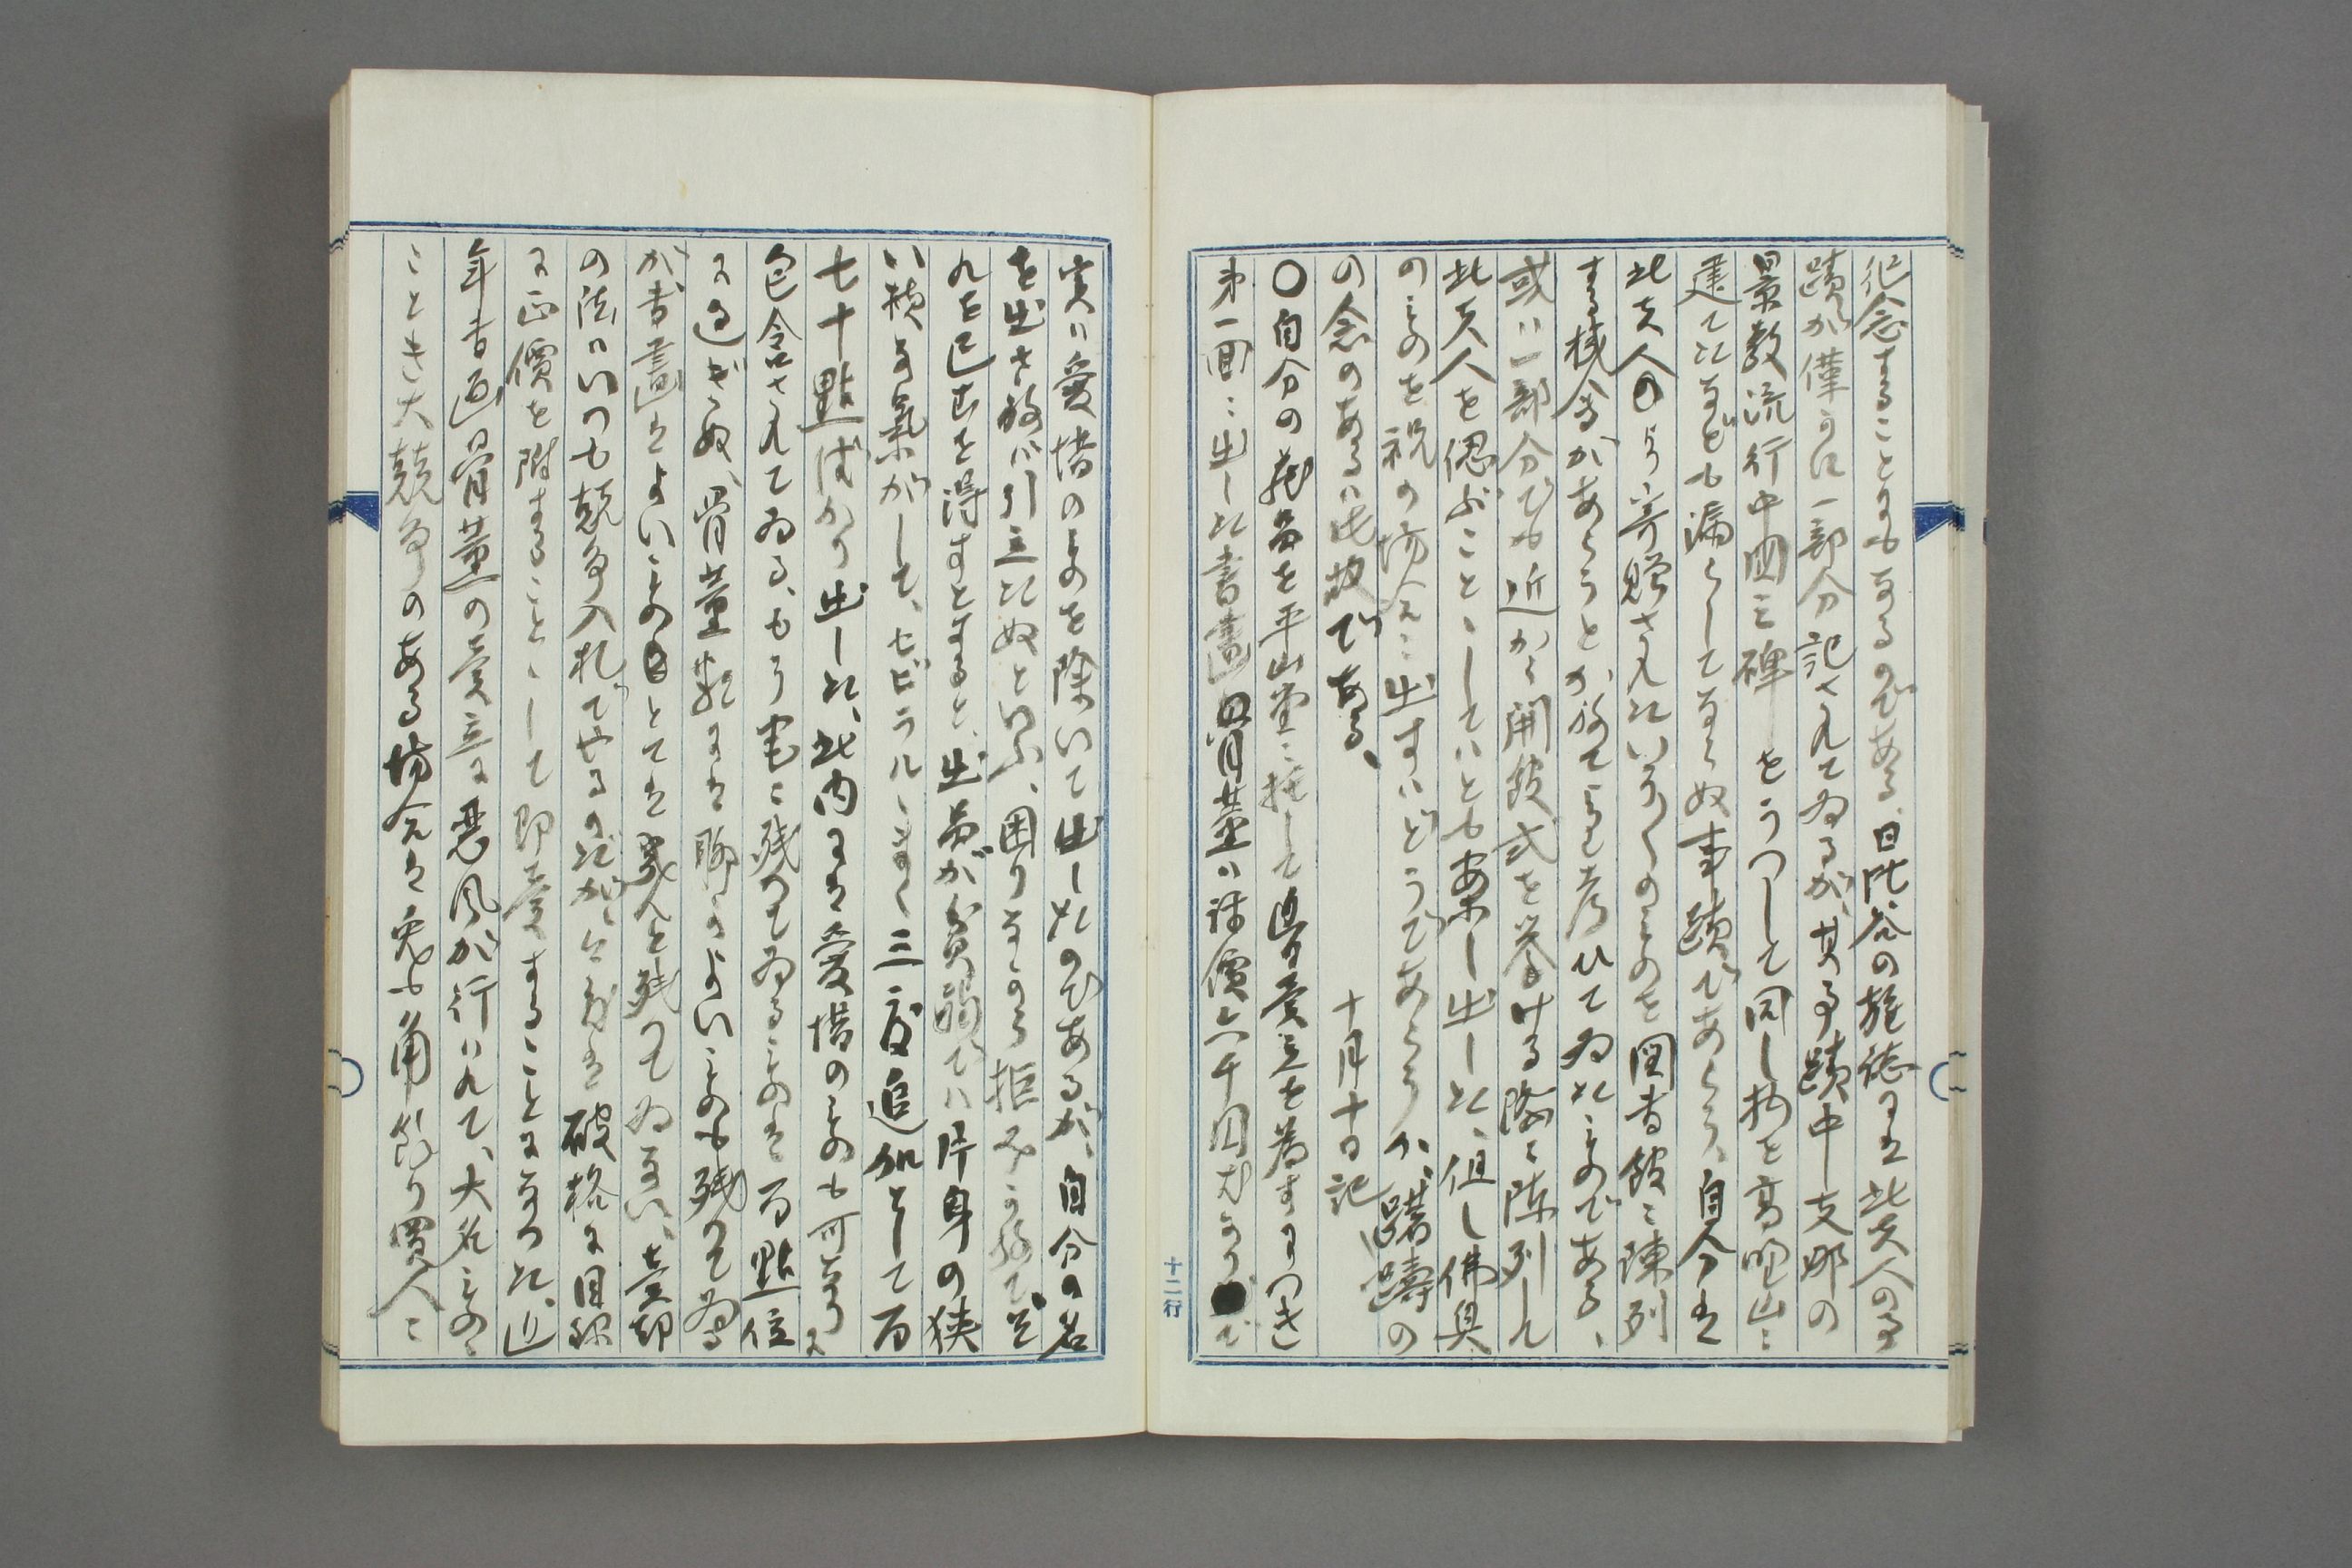 紀念することにもなるのである、日比谷の雑誌には此夫人の事
蹟が僅かに一部分記されてゐるが、其事蹟中支那の
景教流行中国之碑をうつして同し物を高野山に
建てたなども漏らしてならぬ事蹟であらう、自分は
此夫人のより寄贈されたいろ〱のものを図書館に陳列
する機会があらうとか終てこを考ひてゐたものである、
或は一部分でも近かく開館式を挙ける際に陳列し
此夫人を偲ぶことゝしてハとも案し出した、但し佛具
のものを祝の場合に出すはどうであらうか、躊躇の
の念のあるハ此故である、
十月十日記
〇自分の蔵品を平山堂に托して毎日売立を為すにつき
第一回に出した書画骨董ハ評價六千円ばかりで
実ハ愛惜のものを除いて出したのであるが、自分の名
を出さ移バ引立たぬといふ、困りなから拒み移て
れを已むを得すとすると、出品が貧弱でハ片身の狭
い様な気がして、セビラルこまく三度追加として百
七十點ばかり出した、此内には愛惜のものも可なりに
包含されてゐる、もう宅に残つてゐるものは百點位
に過ぎぬ、骨董類には聊かよいものも残つてゐる
が書画はよいものとては幾んと残つてゐない、売却
の法ハいつも競争入札でやるのだが、今度は破格に目録
に正價を附することゝして即売することになつた、近
年書画骨董の売立に悪風が行ハれて、大名ものゝ
ことき大競争のある場合は兎も角餘り買人に
十二行